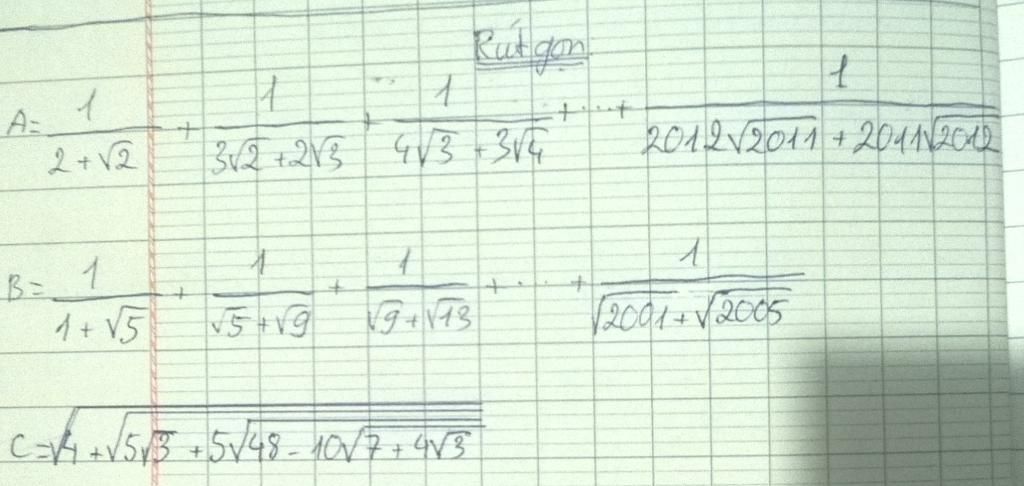 Rút gọn
A = 1/(2 + √2) + 1/(3√2 + 2√3) + 1/(4√3 + 3√4) + ... + 1/(2012√2011 + 2011√2012)
B = 1/(1 + √5) + 1/(√5 + √9) + 1/(√9 + √13) + ... + 1/(√2001 + √2005)
C = √(4 + √(5√3 + 5√(48 - 10√(7 + 4√3))))